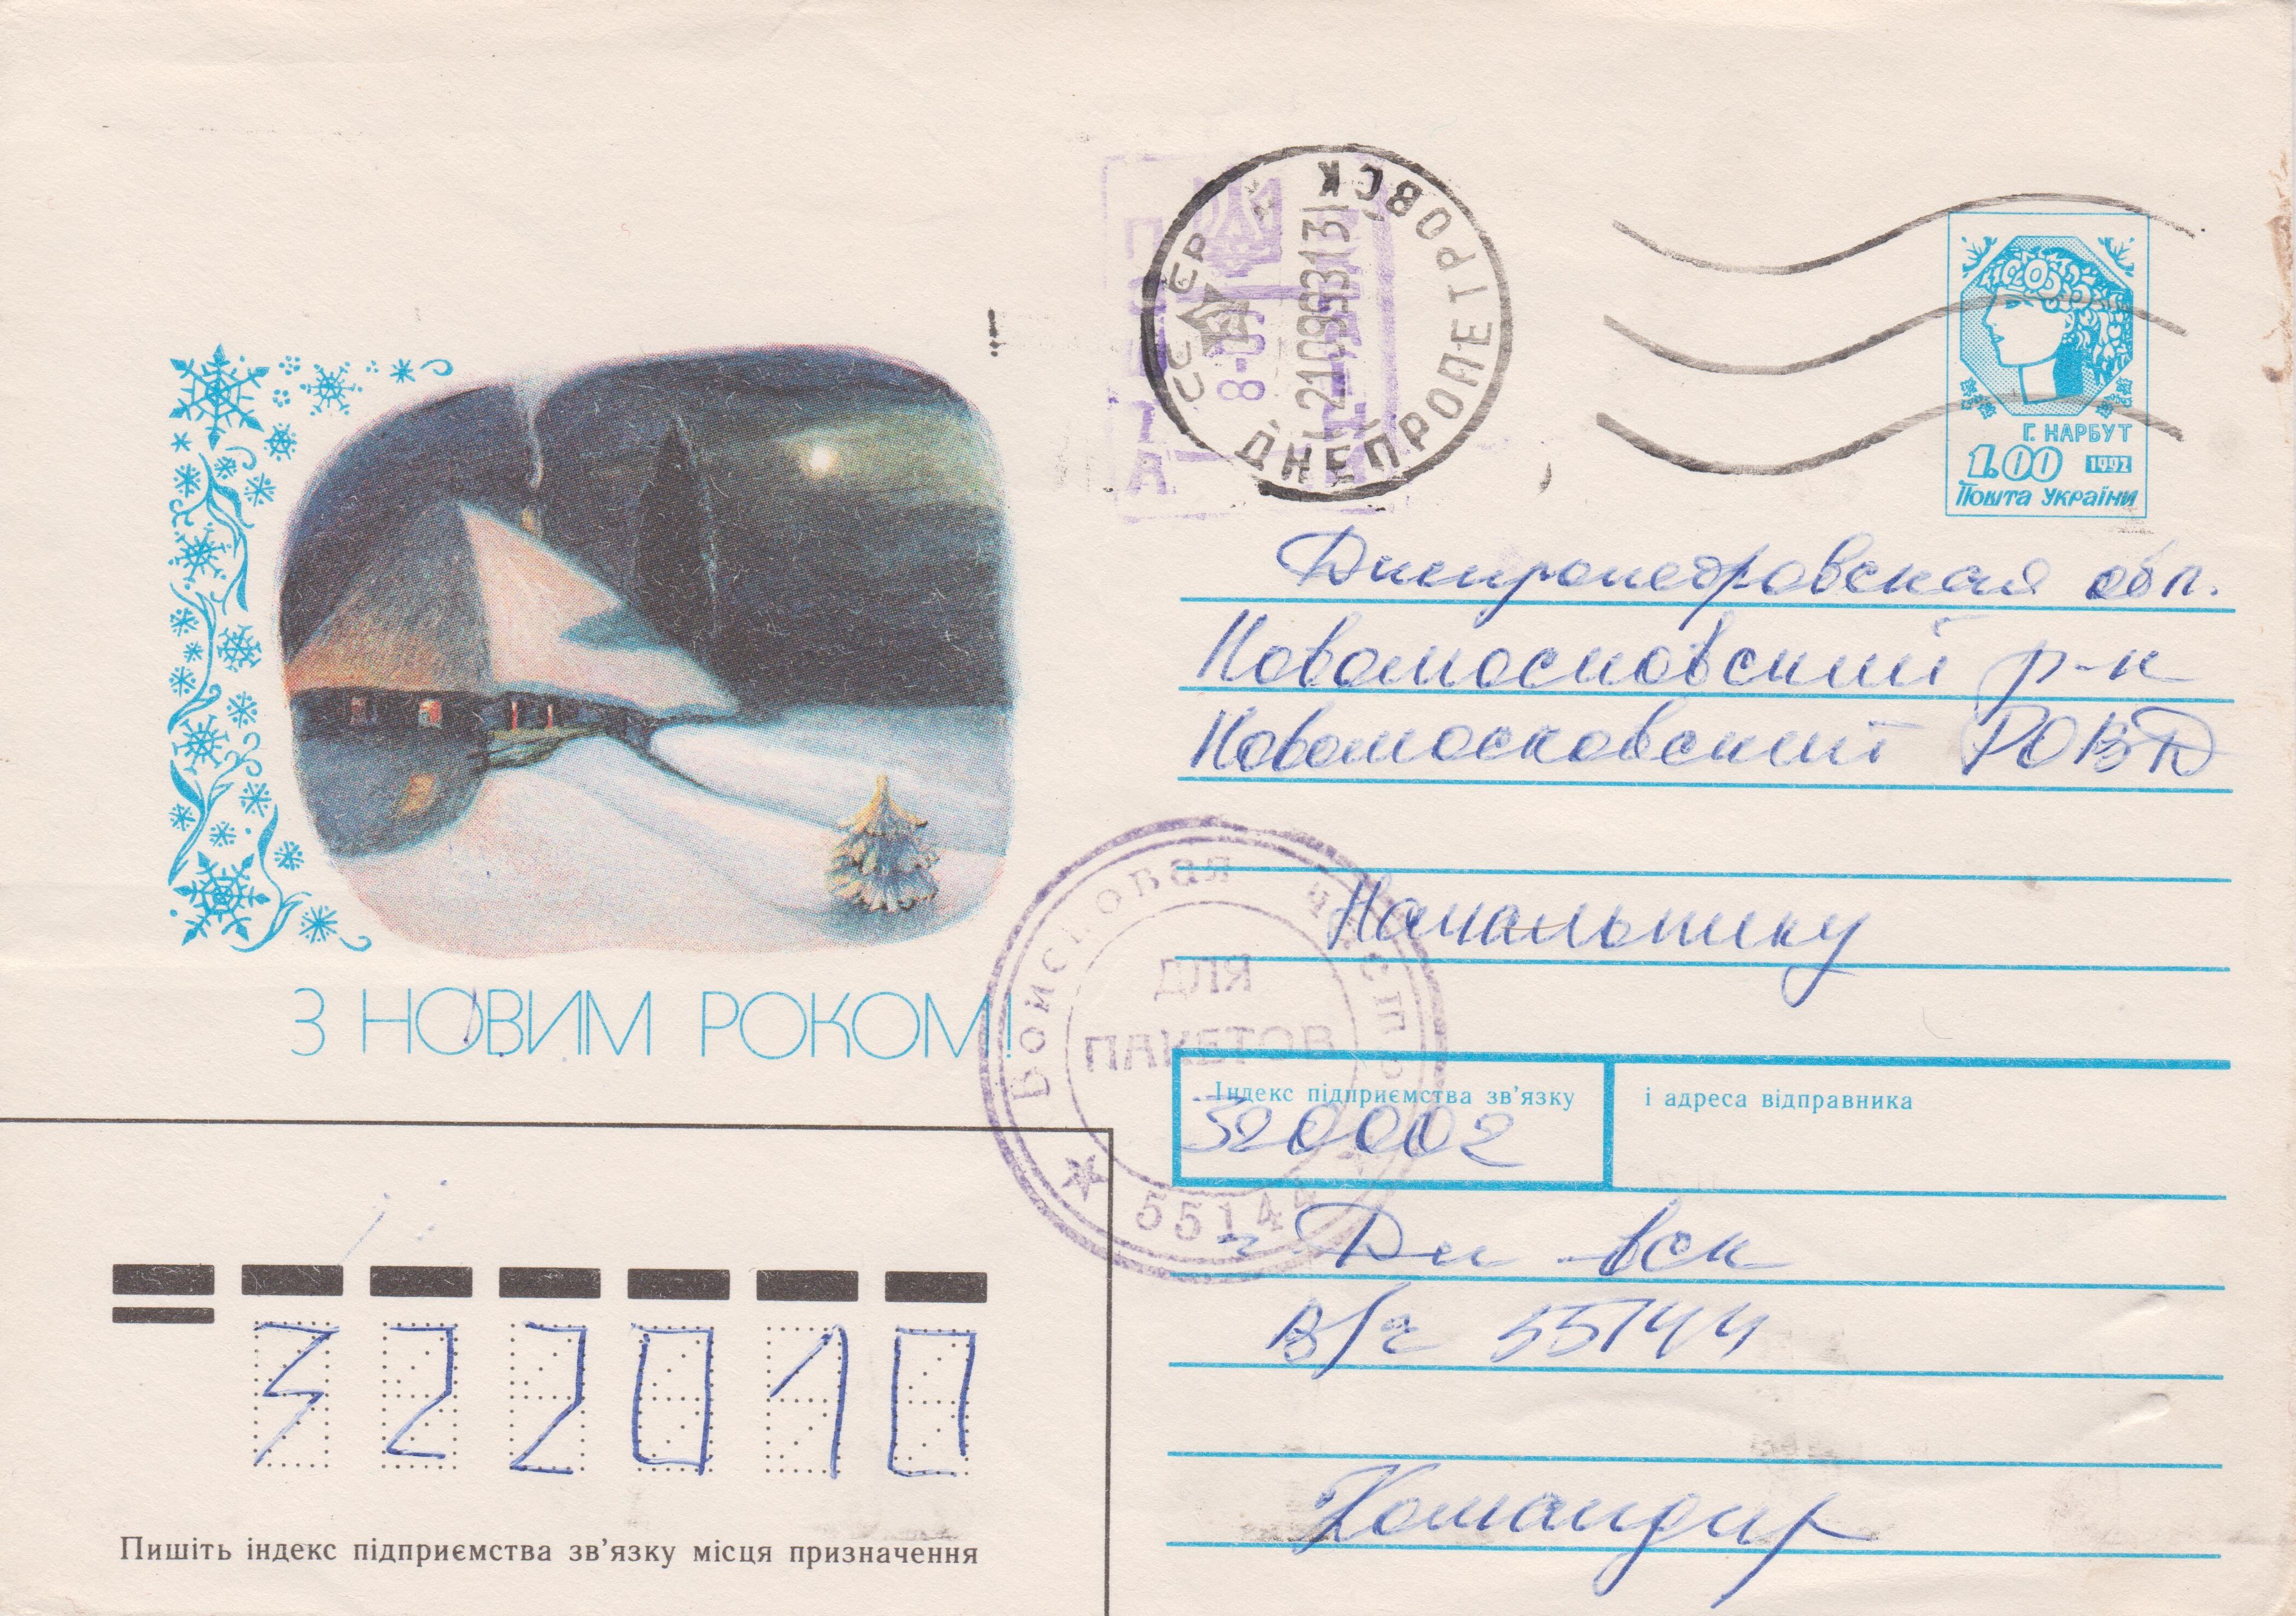 СССР
ДНЕПРОПЕТРОВСК
21099313
ПОШТА
8-00
Г. НАРБУТ
1.00 1992
Пошта України
Днепропетровская обл.
Новомосковский р-н
Новомосковский РОВД
Начальнику
З НОВИМ РОКОМ!
Войсковая часть
ДЛЯ
ПАКЕТОВ
55144
Індекс підприємства зв'язку
і адреса відправника
320002
г. Дн-вск
В/ч 55144
Командир
322010
Пишіть індекс підприємства зв'язку місця призначення